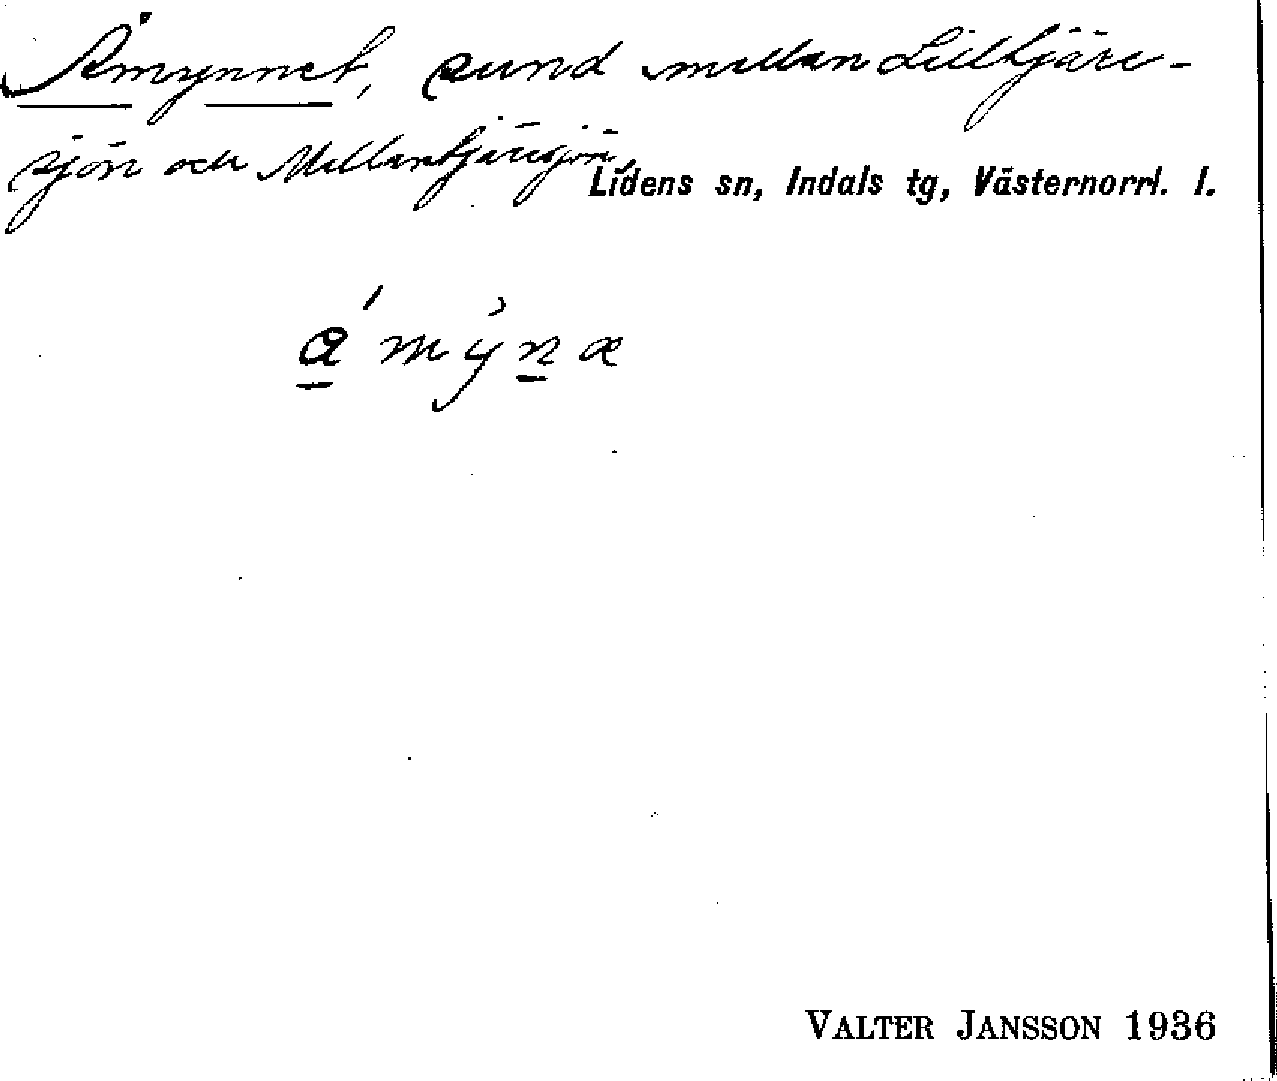 Åmynnet, sund mellan Lilltjäre-
sjön och Mellantjäresjön,
Lidens sn, Indals tg, Västernorrl. l.
VALTER JANSSON 1936